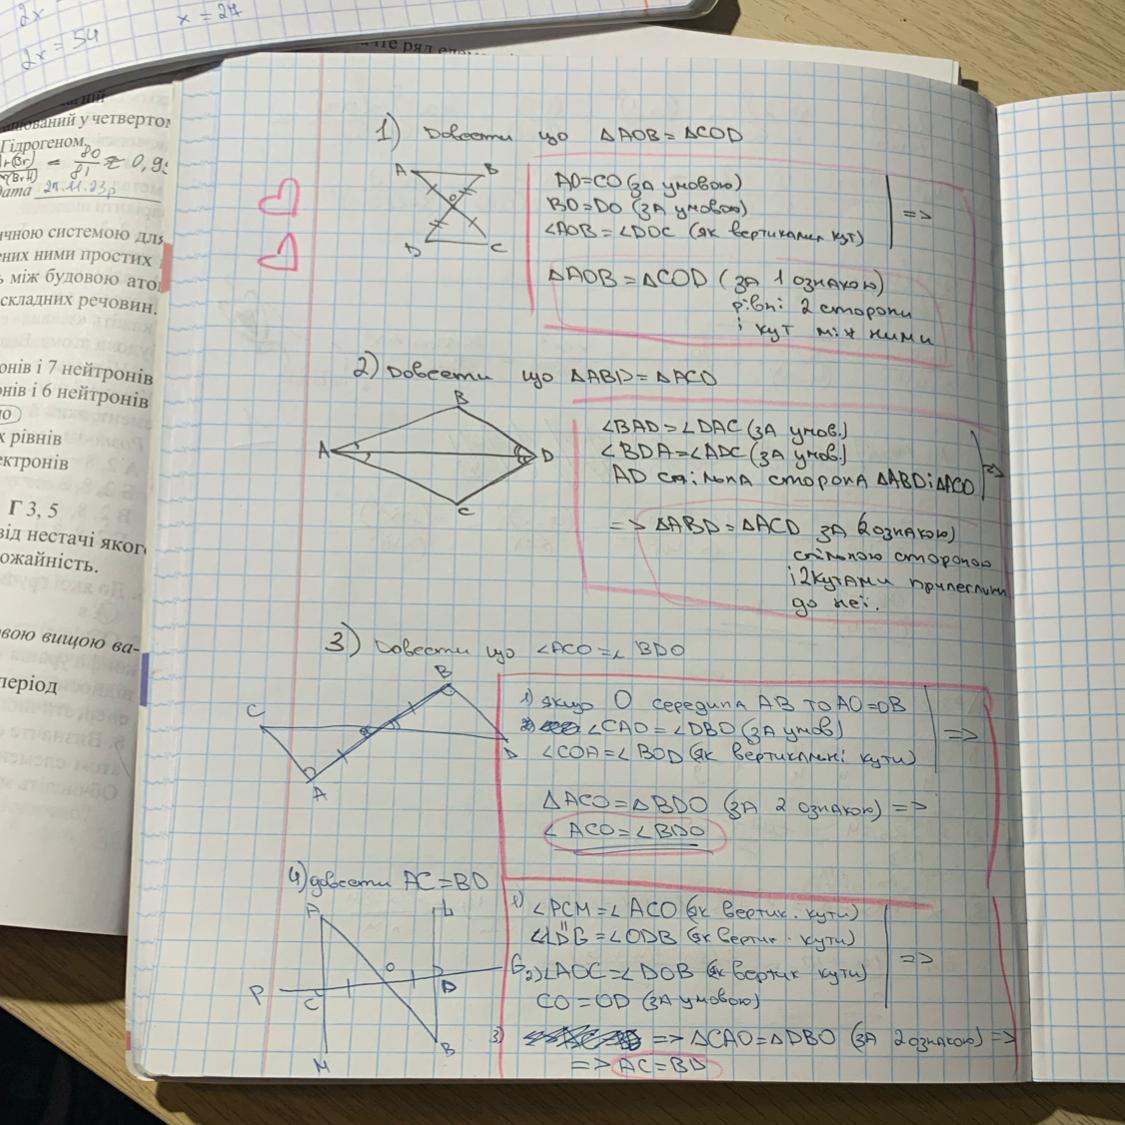 2x
x = 27
2x = 54
ований у четвертом
Гідрогеном
= 80/81 ≈ 0,9
ата 27.11.23р
ичною системою для
ених ними простих
ь між будовою ато
складних речовин.
онів і 7 нейтронів
нів і 6 нейтронів
х рівнів
ектронів
Г 3, 5
від нестачі яког
ожайність.
овою вищою ва-
період
1) Довести що △AOB = △COD
A B
O
D C
AO=CO (за умовою)
BO=DO (за умовою)
∠AOB = ∠DOC (як вертикални кут)
=>
△AOB = △COD (за 1 ознакою)
рівні 2 сторони
і кут між ними
2) Довести що △ABD = △ACD
B
A D
C
∠BAD = ∠DAC (за умов.)
∠BDA = ∠ADC (за умов.)
AD спільна сторона △ABD і △ACD
=>
=> △ABD = △ACD за (2 ознакою)
спільною стороною
і 2 кутами прилеглими
до неї.
3) Довести що ∠ACO = ∠ BDO
B
C
D
A
1) якщо O середина AB то AO=OB
∠CAO = ∠DBO (за умов)
∠COA = ∠BOD (як вертикальні кути)
=>
△ACO = △BDO (за 2 ознакою) =>
∠ ACO = ∠BDO
4) довести AC = BD
A L
O
P C D G
M B
1) ∠PCM = ∠ACO (як вертик. кути)
∠LDG = ∠ODB (як вертик. кути)
2) ∠AOC = ∠DOB (як вертик кути)
CO = OD (за умовою)
=>
3) => △CAO = △DBO (за 2 ознакою) =>
=> AC = BD